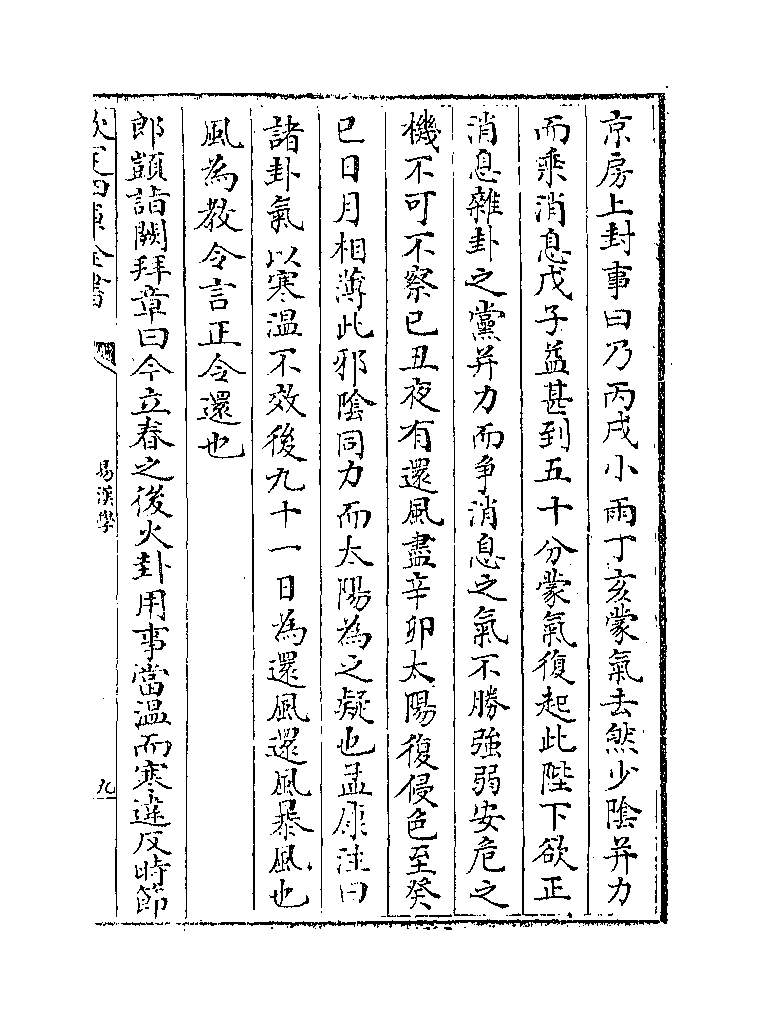 京房上封事曰乃丙戌小雨丁亥蒙氣去然少隂并力
而乘消息戊子益甚到五十分蒙氣復起此陛下欲正
消息雜卦之黨并力而爭消息之氣不勝強弱安危之
機不可不察已丑夜有還風盡辛卯太陽復侵色至癸
巳日月相薄此邪隂同力而太陽為之疑也孟康注曰
諸卦氣以寒温不效後九十一日為還風還風暴風也
風為教令言正令還也
郎顗詣闕拜章曰今立春之後火卦用事當温而寒違反時節
易漢學
九